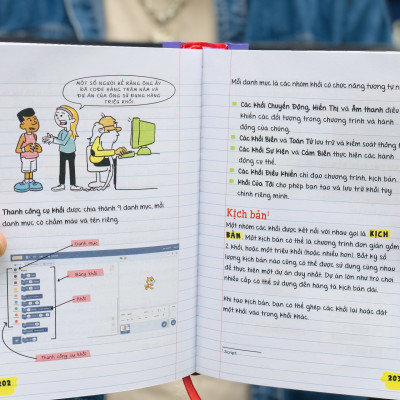 MỘT SỐ NGƯỜI KỂ RẰNG ÔNG ẤY
ĐÃ CODE HÀNG TRĂM NĂM VÀ
DỰ ÁN CỦA ÔNG SỬ DỤNG HÀNG
TRIỆU KHỐI.
Thanh công cụ khối được chia thành 9 danh mục, mỗi
danh mục có chấm màu và tên riêng.
Danh mục
Bảng khối
Khối
Thanh công cụ khối
202
Mỗi danh mục là các nhóm khối có chức năng tương tự
Các khối Chuyển Động, Hiển Thị và Âm thanh điều
khiển các đối tượng trong chương trình và hành
động của chúng.
Các khối Biến và Toán Tử lưu trữ và kiểm soát thông
Các khối Sự Kiện và Cảm Biến thực hiện các hành
động cụ thể.
Các khối Điều Khiển chỉ đạo chương trình, kịch bản.
Khối Của Tôi cho phép bạn tạo và lưu trữ khối tùy
chỉnh riêng mình.
Kịch bản¹
Một nhóm các khối được kết nối với nhau gọi là KỊCH
BẢN. Một kịch bản có thể là chương trình đơn giản gồm
2 khối, hoặc một triệu khối (hoặc nhiều hơn). Bất kỳ số
lượng kịch bản nào cũng có thể được sử dụng cùng nhau
để thực hiện một dự án duy nhất. Dự án lớn như trò chơi
nhiều cấp có thể sử dụng đến hàng tá kịch bản dài.
Khi tạo kịch bản, bạn có thể ghép các khối lại hoặc đặt
một khối vào trong khối khác.
Script.
203